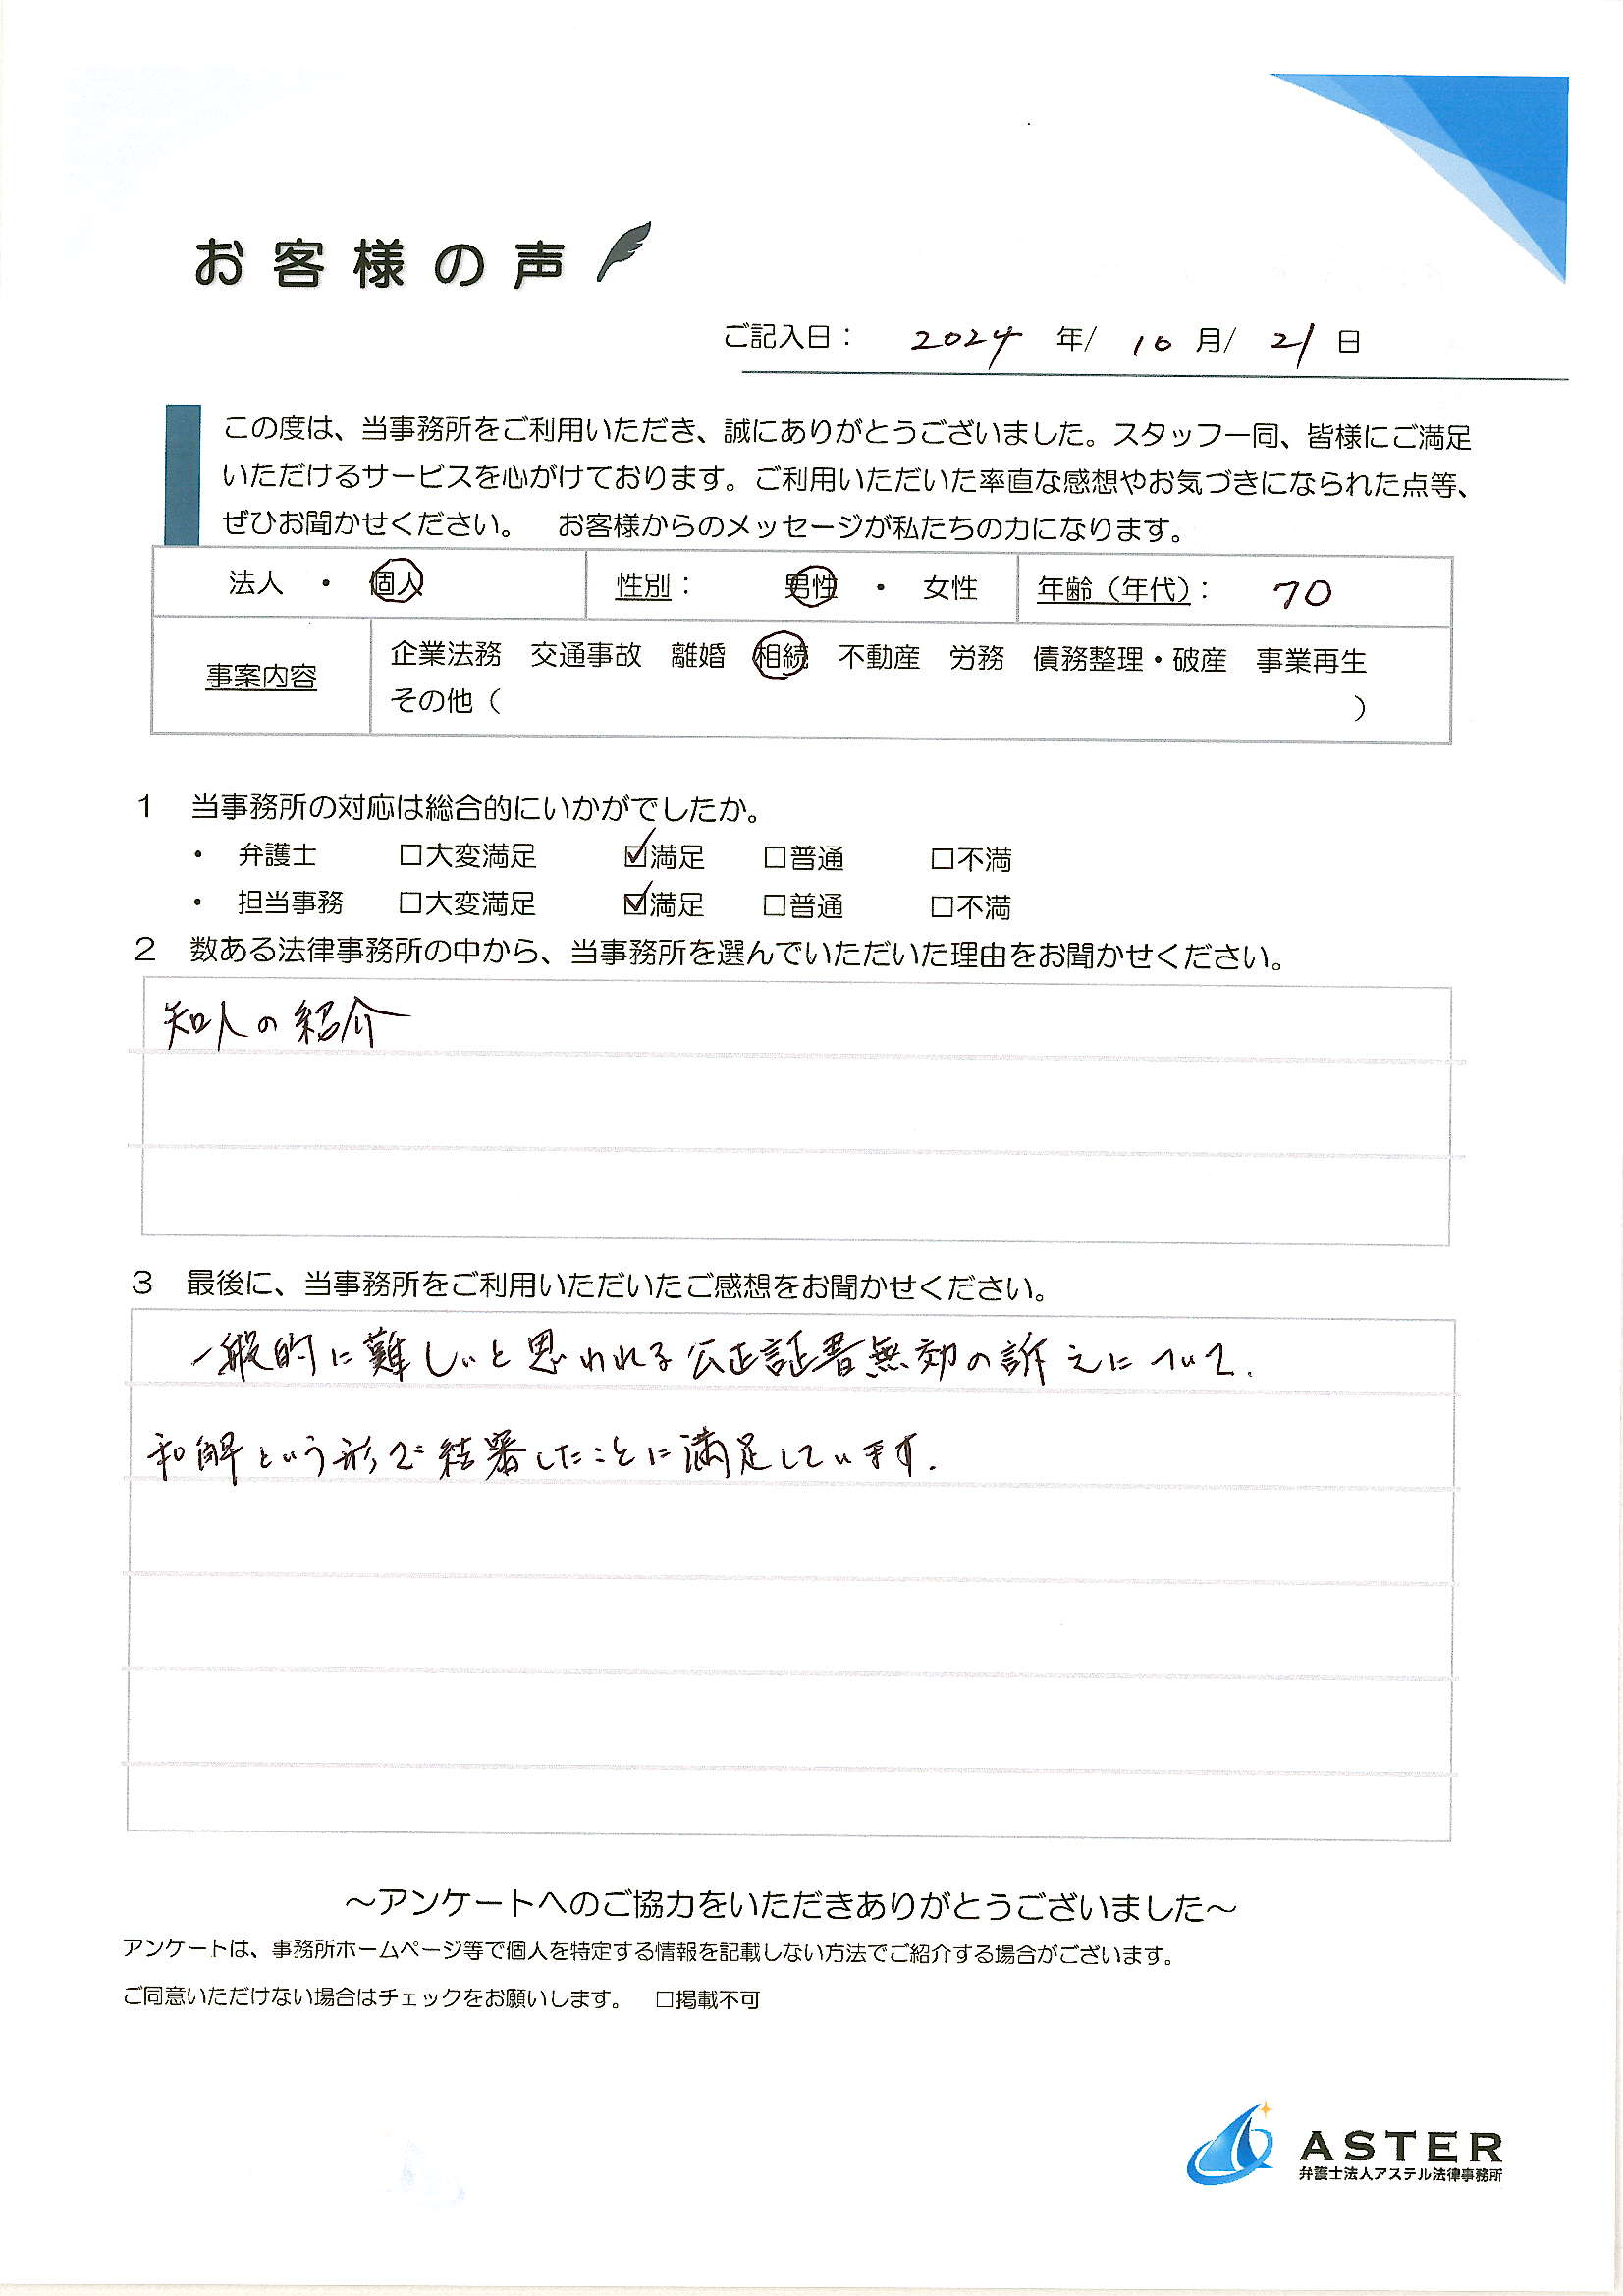 お客様の声
ご記入日： 2024 年/ 10 月/ 21 日
この度は、当事務所をご利用いただき、誠にありがとうございました。スタッフ一同、皆様にご満足
いただけるサービスを心がけております。ご利用いただいた率直な感想やお気づきになられた点等、
ぜひお聞かせください。　お客様からのメッセージが私たちの力になります。
法人 ・ 個人　性別： 男性 ・ 女性　年齢（年代）： 70
事案内容　企業法務　交通事故　離婚　相続　不動産　労務　債務整理・破産　事業再生
その他（　　　）
1　当事務所の対応は総合的にいかがでしたか。
・ 弁護士　□大変満足　☑満足　□普通　□不満
・ 担当事務　□大変満足　☑満足　□普通　□不満
2　数ある法律事務所の中から、当事務所を選んでいただいた理由をお聞かせください。
知人の紹介
3　最後に、当事務所をご利用いただいたご感想をお聞かせください。
一般的に難しいと思われる公正証書無効の訴えについて、
和解という形で結着したことに満足しています。
～アンケートへのご協力をいただきありがとうございました～
アンケートは、事務所ホームページ等で個人を特定する情報を記載しない方法でご紹介する場合がございます。
ご同意いただけない場合はチェックをお願いします。　□掲載不可
ASTER
弁護士法人アステル法律事務所